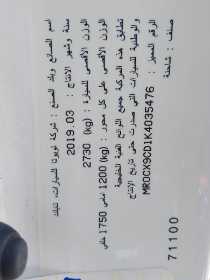 اسم الصانع وبلد الصنع : شركة تويوتا للسيارات، تايلاند
سنة وشهر الإنتاج : 2019.03
الوزن الأقصى للسيارة : (kg) 2730
الوزن الأقصى على كل محور : (kg) 1200 أمامي 1750 خلفي
تطابق هذه المركبة جميع اللوائح الفنية الخليجية
والوطنية للسيارات التي صدرت حتى تاريخ الإنتاج
الرقم المميز : MR0CX9CD1K4035476
صنف : شاحنة
71100